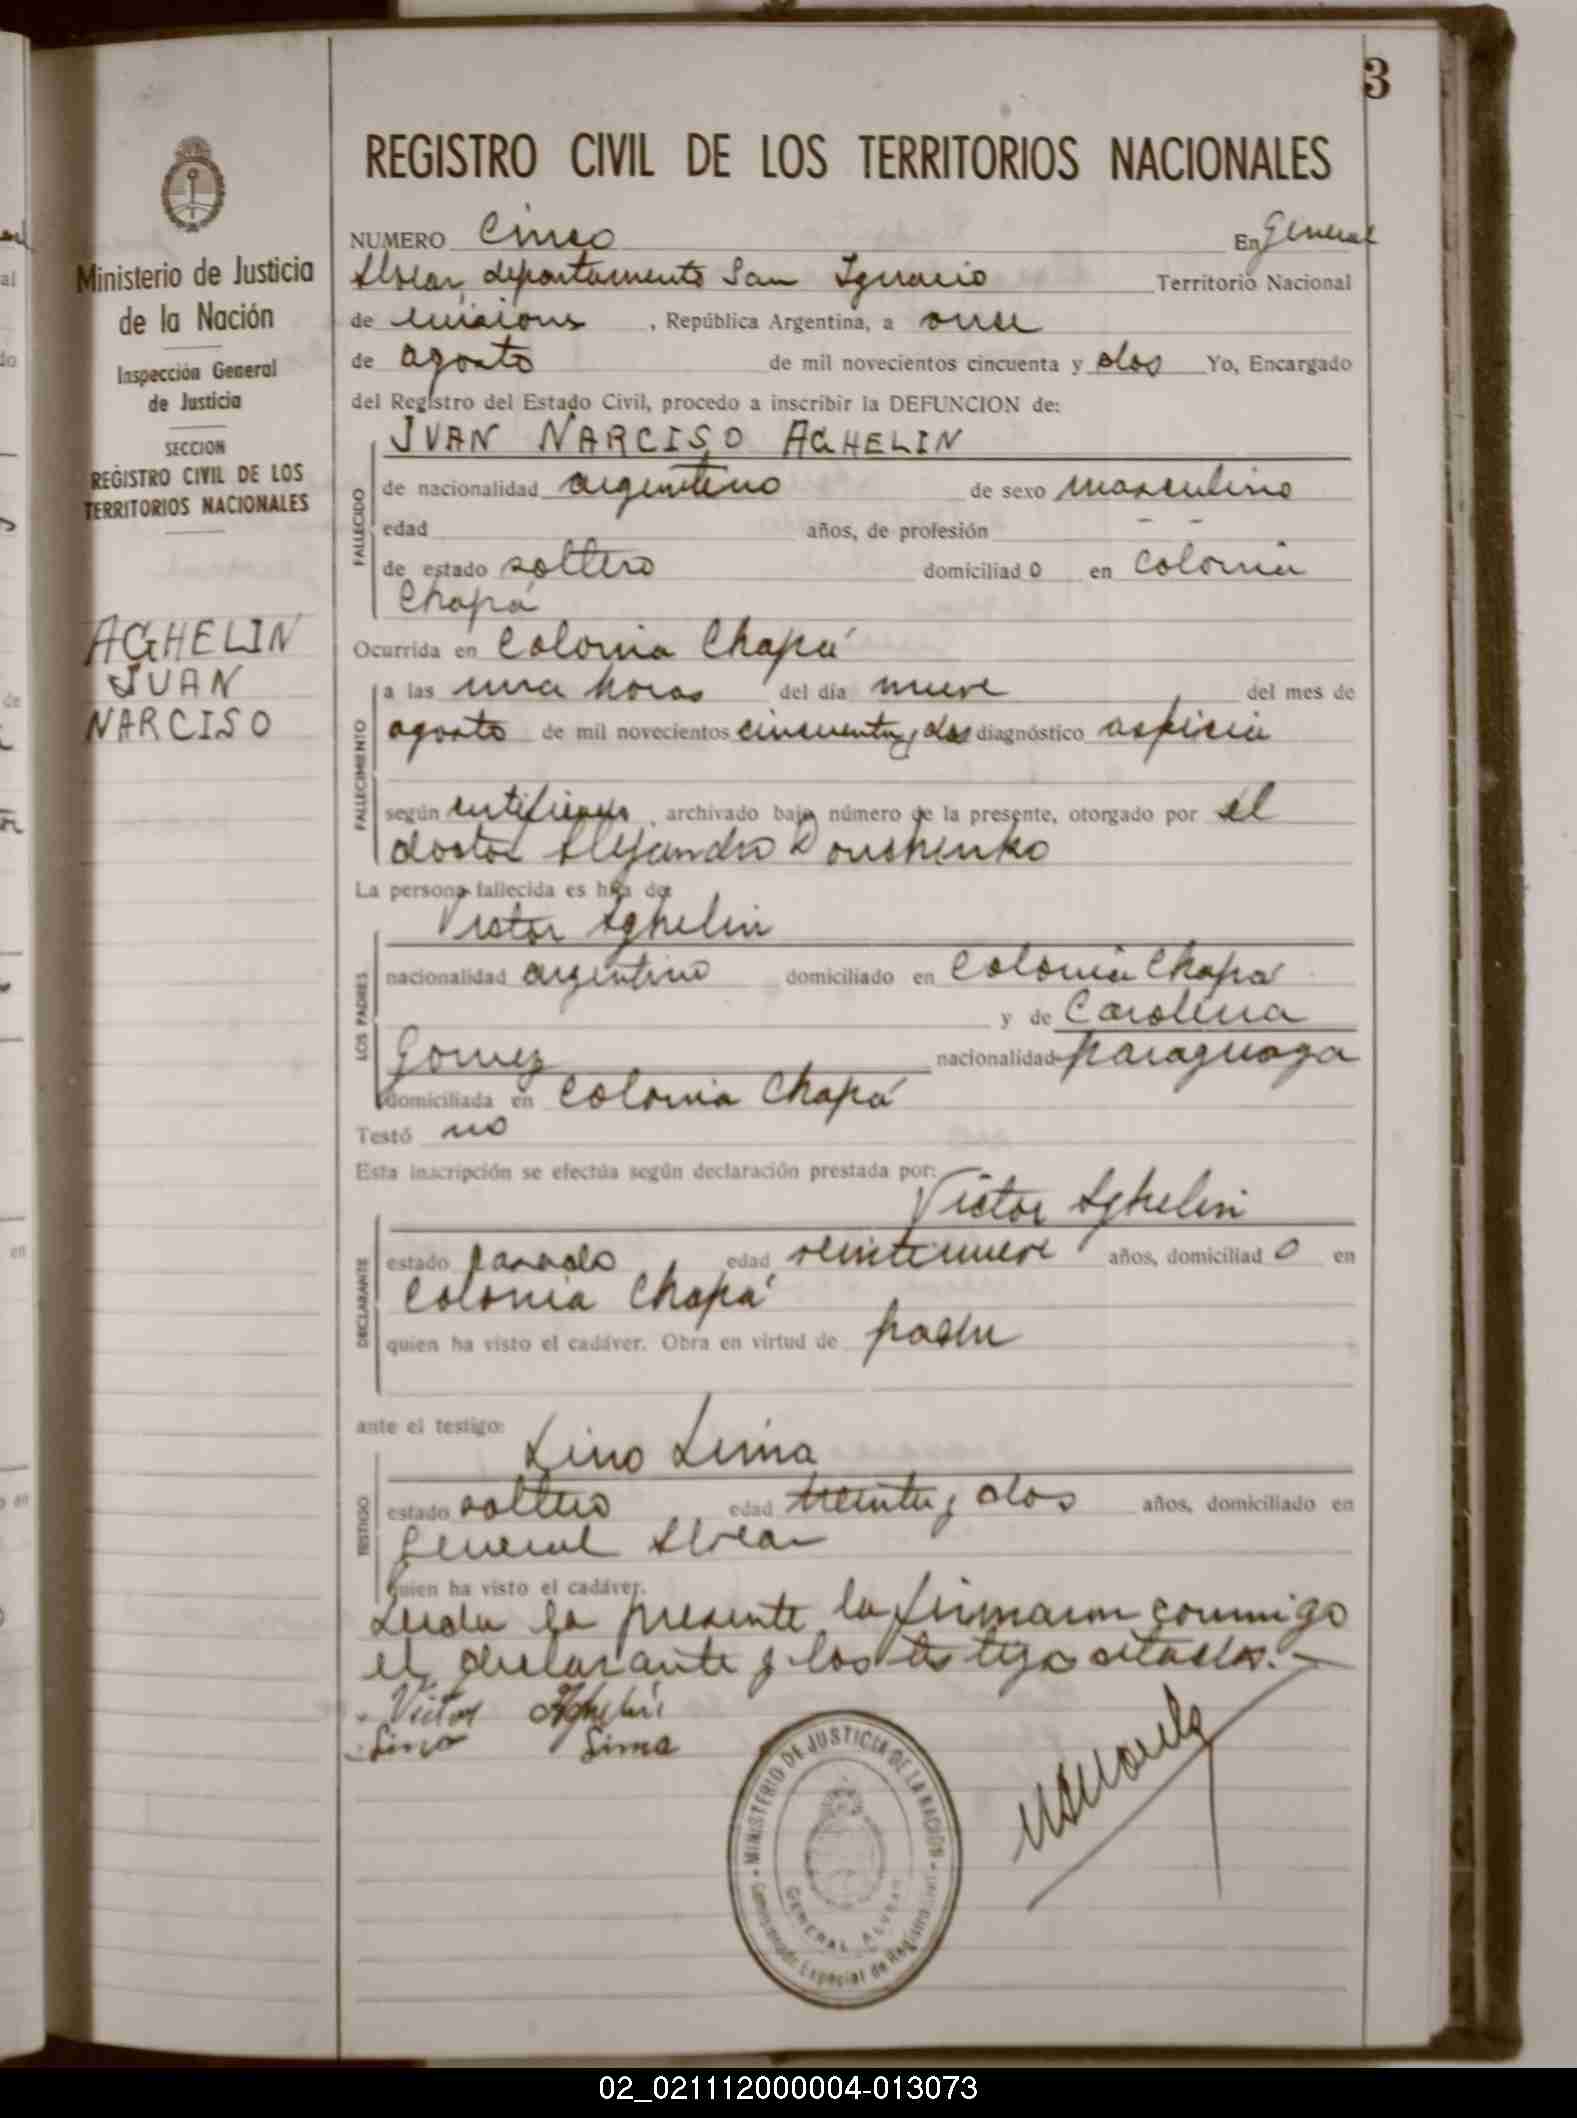 3
REGISTRO CIVIL DE LOS TERRITORIOS NACIONALES
Ministerio de Justicia
de la Nación
Inspección General
de Justicia
SECCION
REGISTRO CIVIL DE LOS
TERRITORIOS NACIONALES
AGHELIN
JUAN
NARCISO
NUMERO Cinco En General
Alvear, departamento San Ignacio Territorio Nacional
de Misiones, República Argentina, a once
de agosto de mil novecientos cincuenta y dos Yo, Encargado
del Registro del Estado Civil, procedo a inscribir la DEFUNCION de:
JUAN NARCISO AGHELIN
FALLECIDO
de nacionalidad argentino de sexo masculino
edad años, de profesión - -
de estado soltero domiciliad o en Colonia
Chapá
Ocurrida en Colonia Chapá
FALLECIMIENTO
a las una horas del día nueve del mes de
agosto de mil novecientos cincuenta y dos diagnóstico asficia
según certificado, archivado bajo número de la presente, otorgado por el
doctor Alejandro Doushenko
La persona fallecida es hija de:
LOS PADRES
Victor Aghelin
nacionalidad argentino domiciliado en Colonia Chapá
y de Carolina
Gomez nacionalidad paraguaya
domiciliada en Colonia Chapá
Testó no
Esta inscripción se efectúa según declaración prestada por:
Victor Aghelin
DECLARANTE
estado casado edad veintinueve años, domiciliad o en
Colonia Chapá
quien ha visto el cadáver. Obra en virtud de padre
ante el testigo:
Lino Lima
TESTIGO
estado soltero edad treinta y dos años, domiciliado en
General Alvear
quien ha visto el cadáver.
Leida la presente la firmaron conmigo
el declarante y los testigo citados.-
Victor Aghelin
Lino Lima
MINISTERIO DE JUSTICIA DE LA NACION
GENERAL ALVEAR
Especial de Registro Civil
02_021112000004-013073